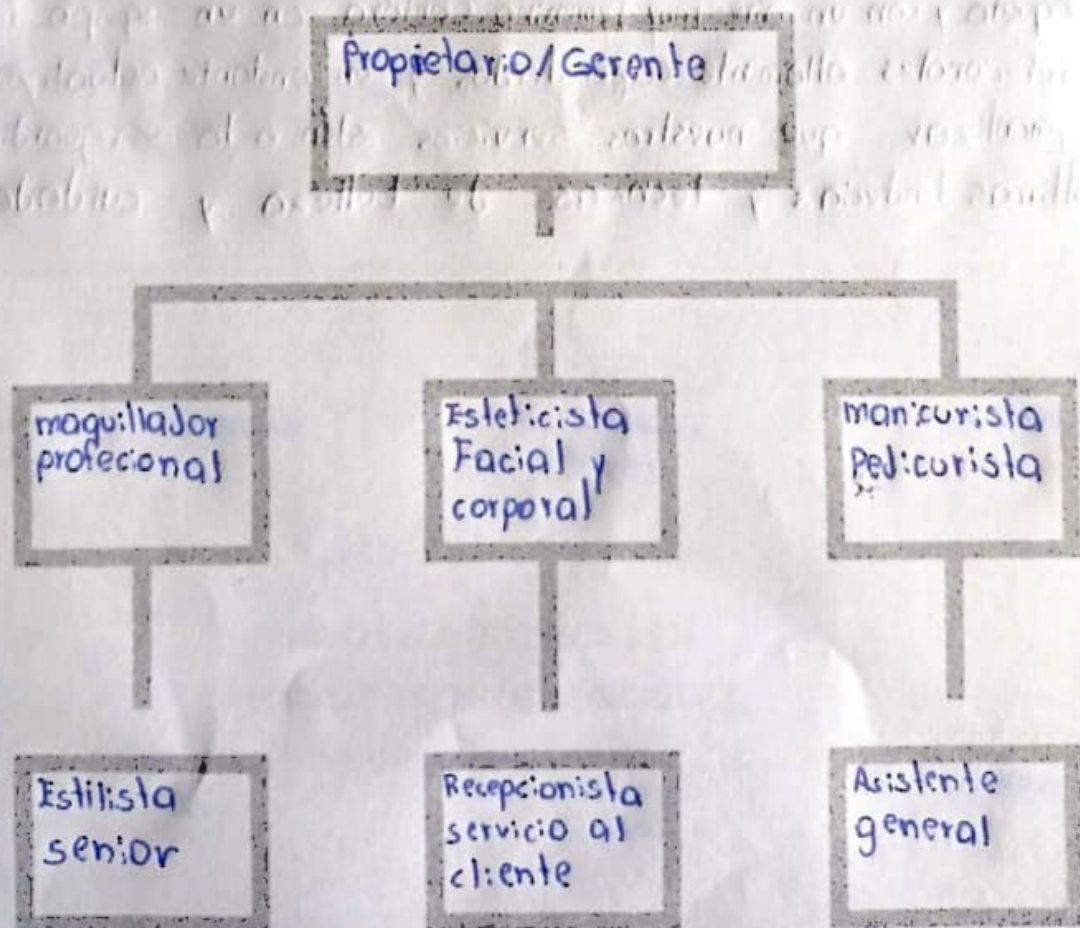 Propietario/Gerente
maquillador
profecional
Esteticista
Facial y
corporal
manicurista
Pedicurista
Estilista
senior
Recepcionista
servicio al
cliente
Asistente
general